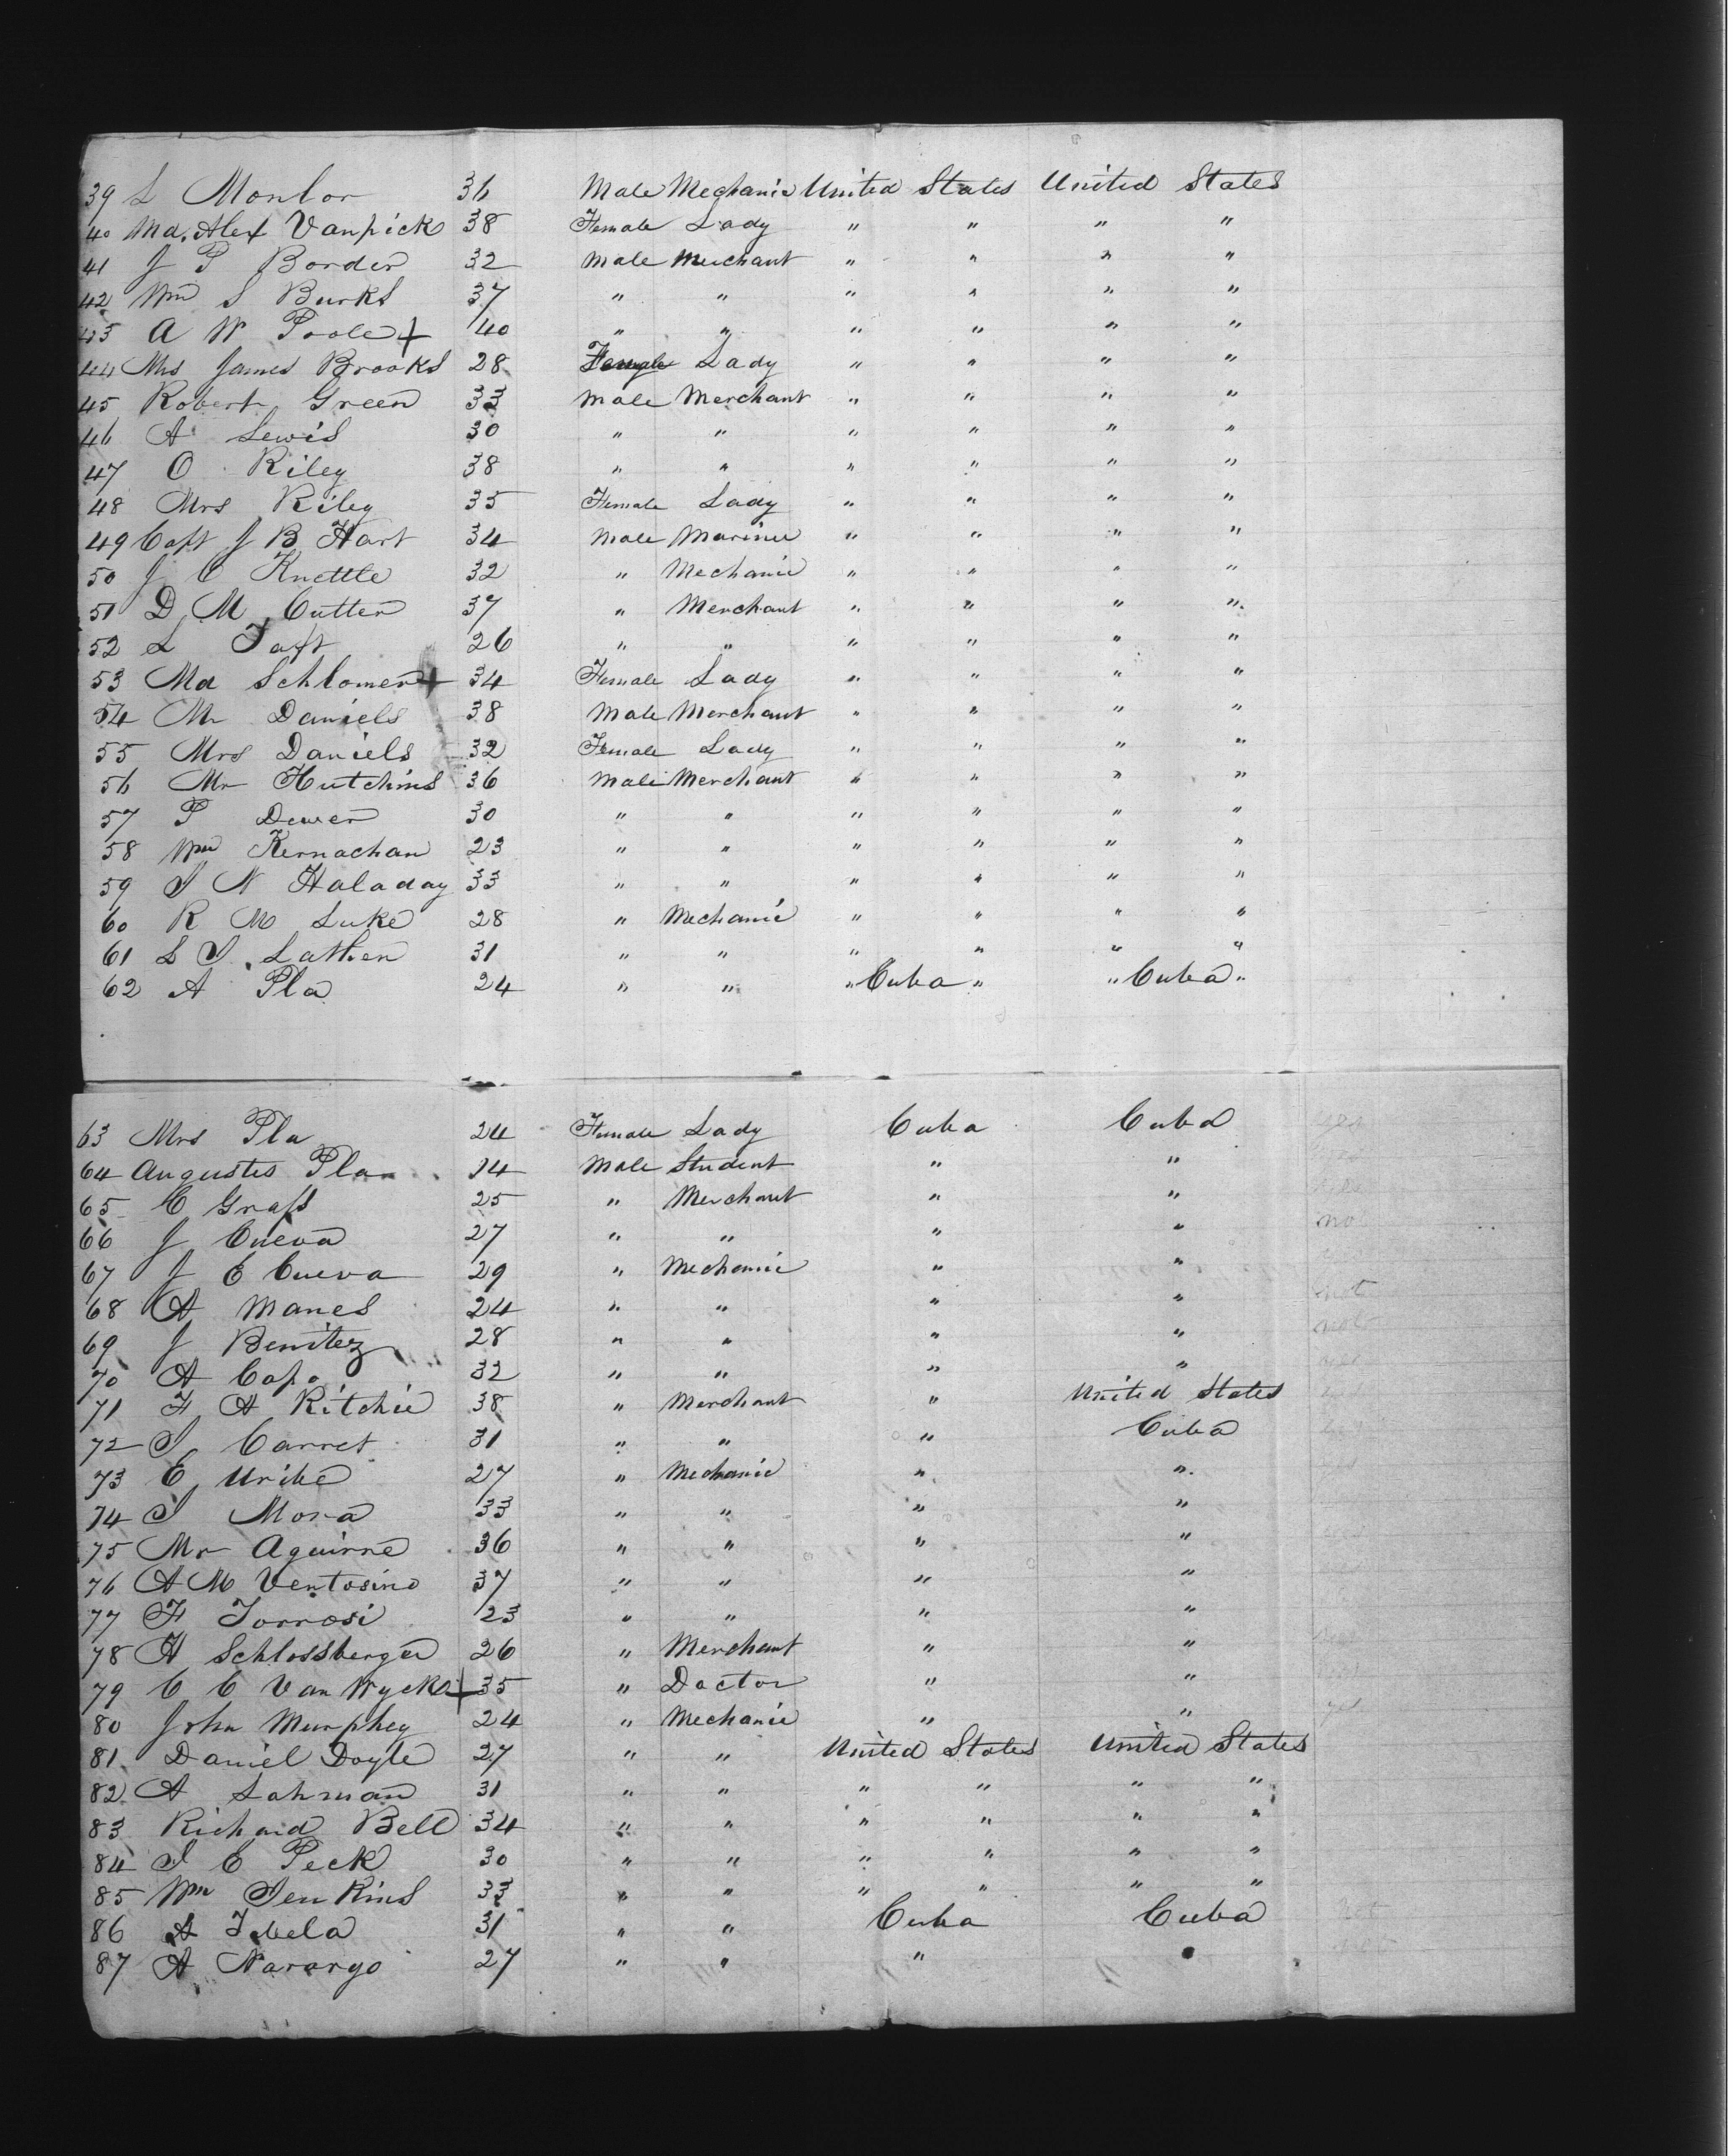 39 L Monlor 36 Male Mechanic United States United States
40 Md. Alex Vanpick 38 Female Lady " " " "
41 J P Border 32 Male Merchant " " " "
42 Wm S Burks 37 " " " " " "
43 A W Poole + 40 " " " " " "
44 Mrs James Brooks 28 Female Lady " " " "
45 Robert Green 33 Male Merchant " " " "
46 A Lewis 30 " " " " " "
47 O Riley 38 " " " " " "
48 Mrs Riley 35 Female Lady " " " "
49 Capt J B Hart 34 Male Mariner " " " "
50 J C Knettle 32 " Mechanic " " " "
51 D M Cutter 37 " Merchant " " " "
52 L Taft 26 " " " " " "
53 Md Schlomer + 34 Female Lady " " " "
54 Mr Daniels 38 Male Merchant " " " "
55 Mrs Daniels 32 Female Lady " " " "
56 Mr Hutchins 36 Male Merchant " " " "
57 P Dewer 30 " " " " " "
58 Wm Kernachan 23 " " " " " "
59 S N Haladay 33 " " " " " "
60 R M Luke 28 " Mechanic " " " "
61 L S Lather 31 " " " " " "
62 A Pla 24 " " " Cuba " " Cuba "
63 Mrs Pla 24 Female Lady Cuba Cuba
64 Augustes Pla 14 Male Student " "
65 C Grass 25 " Merchant " "
66 J Cueva 27 " " " " no
67 J E Cueva 29 " Mechanic " "
68 A Manes 24 " " " " not
69 J Benitez 28 " " " "
70 A Capo 32 " " " "
71 F A Ritchie 38 " Merchant " United States
72 S Carret 31 " " " Cuba
73 E Uribe 27 " Mechanic " "
74 S Mora 33 " " " "
75 Mr Aguirre 36 " " " "
76 A M Ventosino 37 " " " "
77 F Torrosi 23 " " " "
78 H Schlossberger 26 " Merchant " "
79 C C Van Wyck + 35 " Doctor " "
80 John Murphey 24 " Mechanic " " yes
81 Daniel Doyle 27 " " United States United States
82 A Lahman 31 " " " " " "
83 Richard Bell 34 " " " " " "
84 S C Peck 30 " " " " " "
85 Wm Jenkins 33 " " " " " "
86 A 31 " " Cuba Cuba not
87 A Narargo 27 " " " "